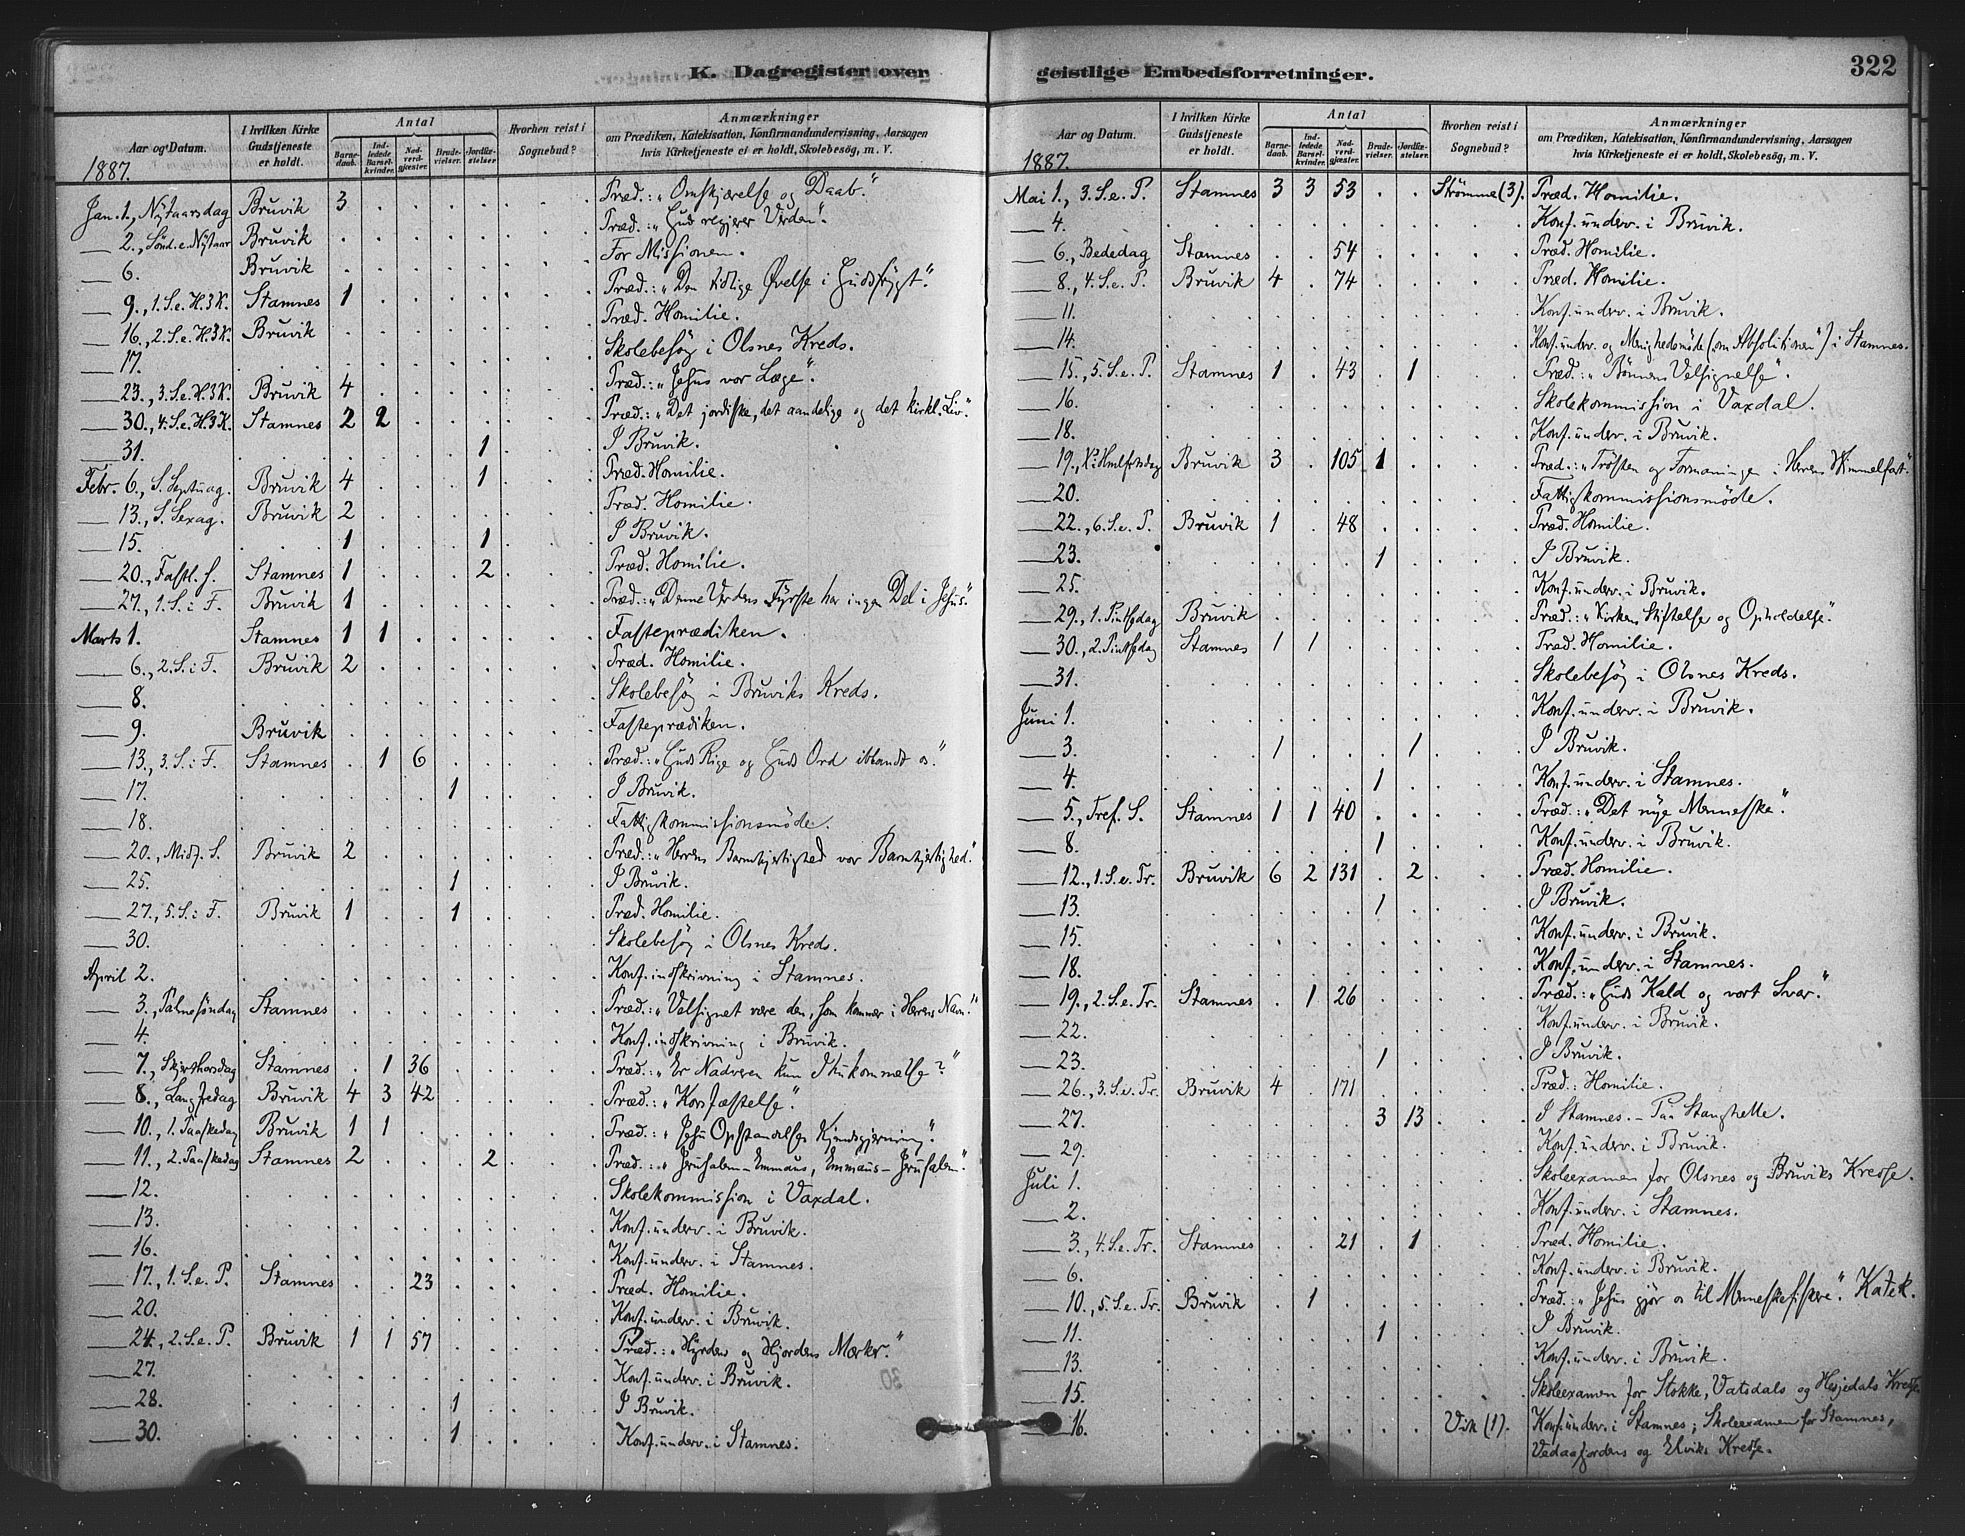 K. Dagregister over
Aar og Datum. I hvilken Kirke Gudstjeneste er holdt. Antal Barnedaab. Indledede Barselkvinder. Nadverdgjæster. Brudevielser. Jordfæstelser Hvorhen reist i Sognebud? Anmærkninger om Prædiken, Katekisation, Konfirmandundervisning, Aarsagen hvis Kirketjeneste ei er holdt, Skolebesøg, m. V.
1887.
Jan. 1, Nytaarsdag Bruvik 3 . . . . Præd.: „Omskjærelse og Daab."
— 2., Sönd. e. Nytaar Bruvik . . . . . Præd.: „Gud regjerer Verden".
— 6. Bruvik . . . . . For Missionen.
— 9., 1. S. e. H. 3 K. Stamnes 1 . . . . Præd.: „Den tidlige Øvelse i Gudsfrygt".
— 16., 2. S. e. H. 3 K. Bruvik . . . . . Præd. Homilie.
— 17. . . . . . Skolebesøg i Olsnes Kreds.
— 23., 3. S. e. H. 3 K. Bruvik 4 . . . . Præd.: „Jesus vor Læge".
— 30., 4. S. e. H. 3 K. Stamnes 2 2 . . . Præd.: „Det jordiske, det aandelige og det kirkl. Liv".
— 31. . . . . 1 I Bruvik.
Febr. 6., S. Septuag. Bruvik 4 . . . 1 Præd. Homilie.
— 13., S. Sexag. Bruvik 2 . . . . Præd. Homilie.
— 15. 1 . . . 1 I Bruvik.
— 20., Fastl. S. Stamnes 1 . . . 2 Præd. Homilie.
— 27., 1. S. i F. Bruvik 1 . . . . Præd.: „Denne Verdens Fyrste har ingen Del i Jesus".
Marts 1. Stamnes 1 1 . . . Fasteprædiken.
— 6., 2. S. i F. Bruvik 2 . . . . Præd. Homilie.
— 8. . . . . . Skolebesøg i Bruviks Kreds.
— 9. Bruvik . . . . . Fasteprædiken.
— 13., 3. S. i F. Stamnes . 1 6 . . Præd.: „Guds Rige og Guds Ord iblandt os".
— 17. . . . 1 . I Bruvik.
— 18. . . . . . Fattigkommissionsmöde.
— 20., Midf. S. Bruvik 2 . . . . Præd.: „Herrens Barmhjertighed vor Barmhjertighed".
— 25. . . . 1 . I Bruvik.
— 27., 5. S. i F. Bruvik 1 . . 1 . Præd. Homilie.
— 30. . . . . . Skolebesøg i Olsnes Kreds.
April 2. . . . . . Konf. indskrivning i Stamnes.
— 3., Palmesöndag Stamnes . . . . . Præd.: „Velsignet være den, som kommer i Herrens Navn!"
— 4. . . . . . Konf. indskrivning i Bruvik.
— 7., Skjærthorsdag Stamnes . 1 36 . . Præd.: „Er Nadveren kun Ihukommelse?"
— 8., Langfredag Bruvik 4 3 42 . . Præd.: „Korsfæstelse".
— 10., 1. Paaskedag Bruvik 1 1 . . . Præd.: „Jesu Opstandelses Kjendsgjerning".
— 11., 2. Paaskedag Stamnes 2 . . . 2 Præd.: „Jerusalem – Emmaus, Emmaus – Jerusalem".
— 12. . . . . . Skolekommission i Vaxdal.
— 13. . . . . . Konf. underv. i Bruvik.
— 16. . . . . . Konf. underv. i Stamnes.
— 17., 1. S. e. P. Stamnes . . 23 . . Præd. Homilie.
— 20. . . . . . Konf. underv. i Bruvik.
— 24., 2. S. e. P. Bruvik 1 1 57 . . Præd.: „Hyrdens og Hjordens Mærker".
— 27. . . . . . Konf. underv. i Bruvik.
— 28. . . . 1 . I Bruvik.
— 30. . . . 1 . Konf. underv. i Stamnes.
geistlige Embedsforretninger. 322
Aar og Datum. I hvilken Kirke Gudstjeneste er holdt. Antal Barnedaab. Indledede Barselkvinder. Nadverdgjæster. Brudevielser. Jordfæstelser. Hvorhen reist i Sognebud? Anmærkninger om Prædiken, Katekisation, Konfirmandundervisning, Aarsagen hvis Kirketjeneste ei er holdt, Skolebesøg, m. V.
1887.
Mai 1., 3. S. e. P. Stamnes 3 3 53 . . Strömme (3). Præd. Homilie.
— 4. . . . . . Konf. underv. i Bruvik.
— 6., Bededag Stamnes . . 54 . . Præd. Homilie.
— 8., 4. S. e. P. Bruvik 4 . 74 . . Præd. Homilie.
— 11. . . . . . Konf. underv. i Bruvik.
— 14. . . . . . Konf. underv. og Menighedsmöde („om Absolutionen") i Stamnes.
— 15., 5. S. e. P. Stamnes 1 . 43 . 1 Præd.: „Bönnens Velsignelse".
— 16. . . . . . Skolekommission i Vaxdal.
— 18. . . . . . Konf. underv. i Bruvik.
— 19., Kr. Hmlfartsdag Bruvik 3 . 105 1 . Præd.: „Trösten og Formaningen i Herrens Himmelfart".
— 20. . . . . . Fattigkommissionsmöde.
— 22., 6. S. e. P. Bruvik 1 . 48 . . Præd. Homilie.
— 23. . . . 1 . I Bruvik.
— 25. . . . . . Konf. underv. i Bruvik.
— 29., 1. Pintsedag Bruvik . . . . . Præd.: „Kirkens Stiftelse og Opholdelse".
— 30., 2. Pintsedag Stamnes 1 1 . . . Præd. Homilie.
— 31. . . . . . Skolebesøg i Olsnes Kreds.
Juni 1. . . . . . Konf. underv. i Bruvik.
— 3. 1 . . . 1 I Bruvik.
— 4. . . . 1 . Konf. underv. i Stamnes.
— 5., Tref. S. Stamnes 1 1 40 . . Præd.: „Det nye Menneske".
— 8. . . . 1 . Konf. underv. i Bruvik.
— 12., 1. S. e. Tr. Bruvik 6 2 131 . 2 Præd. Homilie.
— 13. . . . 1 . I Bruvik.
— 15. . . . . . Konf. underv. i Bruvik.
— 18. . . . . . Konf. underv. i Stamnes.
— 19., 2. S. e. Tr. Stamnes . 1 26 . . Præd.: „Guds Kald og vort Svar".
— 22. . . . . . Konf. underv. i Bruvik.
— 23. . . . 1 . I Bruvik.
— 26., 3. S. e. Tr. Bruvik 4 . 171 . . Præd.: Homilie.
— 27. . . . 3 13 I Stamnes. – Paa Stanghelle.
— 29. . . . . . Konf. underv. i Bruvik.
Juli 1. . . . . . Skoleexamen for Olsnes og Bruviks Kredse.
— 2. . . . . . Konf. underv. i Stamnes.
— 3., 4. S. e. Tr. Stamnes . . 21 . 1 Præd. Homilie.
— 6. . . . . . Konf. underv. i Bruvik.
— 10., 5. S. e. Tr. Bruvik . 1 . . . Præd.: „Jesus gjör os til Menneskefiskere". Katek.
— 11. . . . 1 . I Bruvik.
— 13. . . . . . Konf. underv. i Bruvik.
— 15. . . . . . Skoleexamen for Stokke, Vatsdals og Hesjedals Kredse.
— 16. . . . . . Vik (1). Konf. underv. i Stamnes; Skoleexamen for Stamnes,
Vedaafjordens og Elviks Kredse.